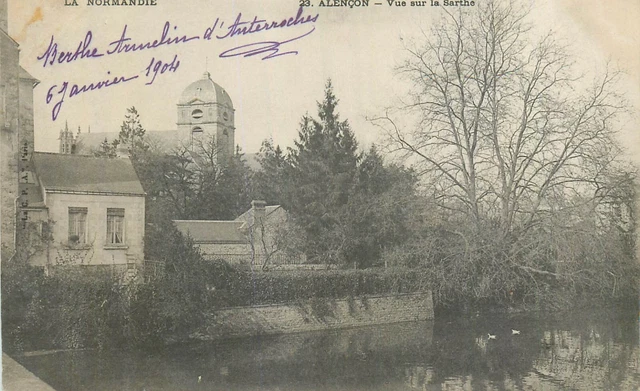 LA NORMANDIE
23. ALENÇON - Vue sur la Sarthe
Berthe Armelin d'Auterroches
6 Janvier 1904